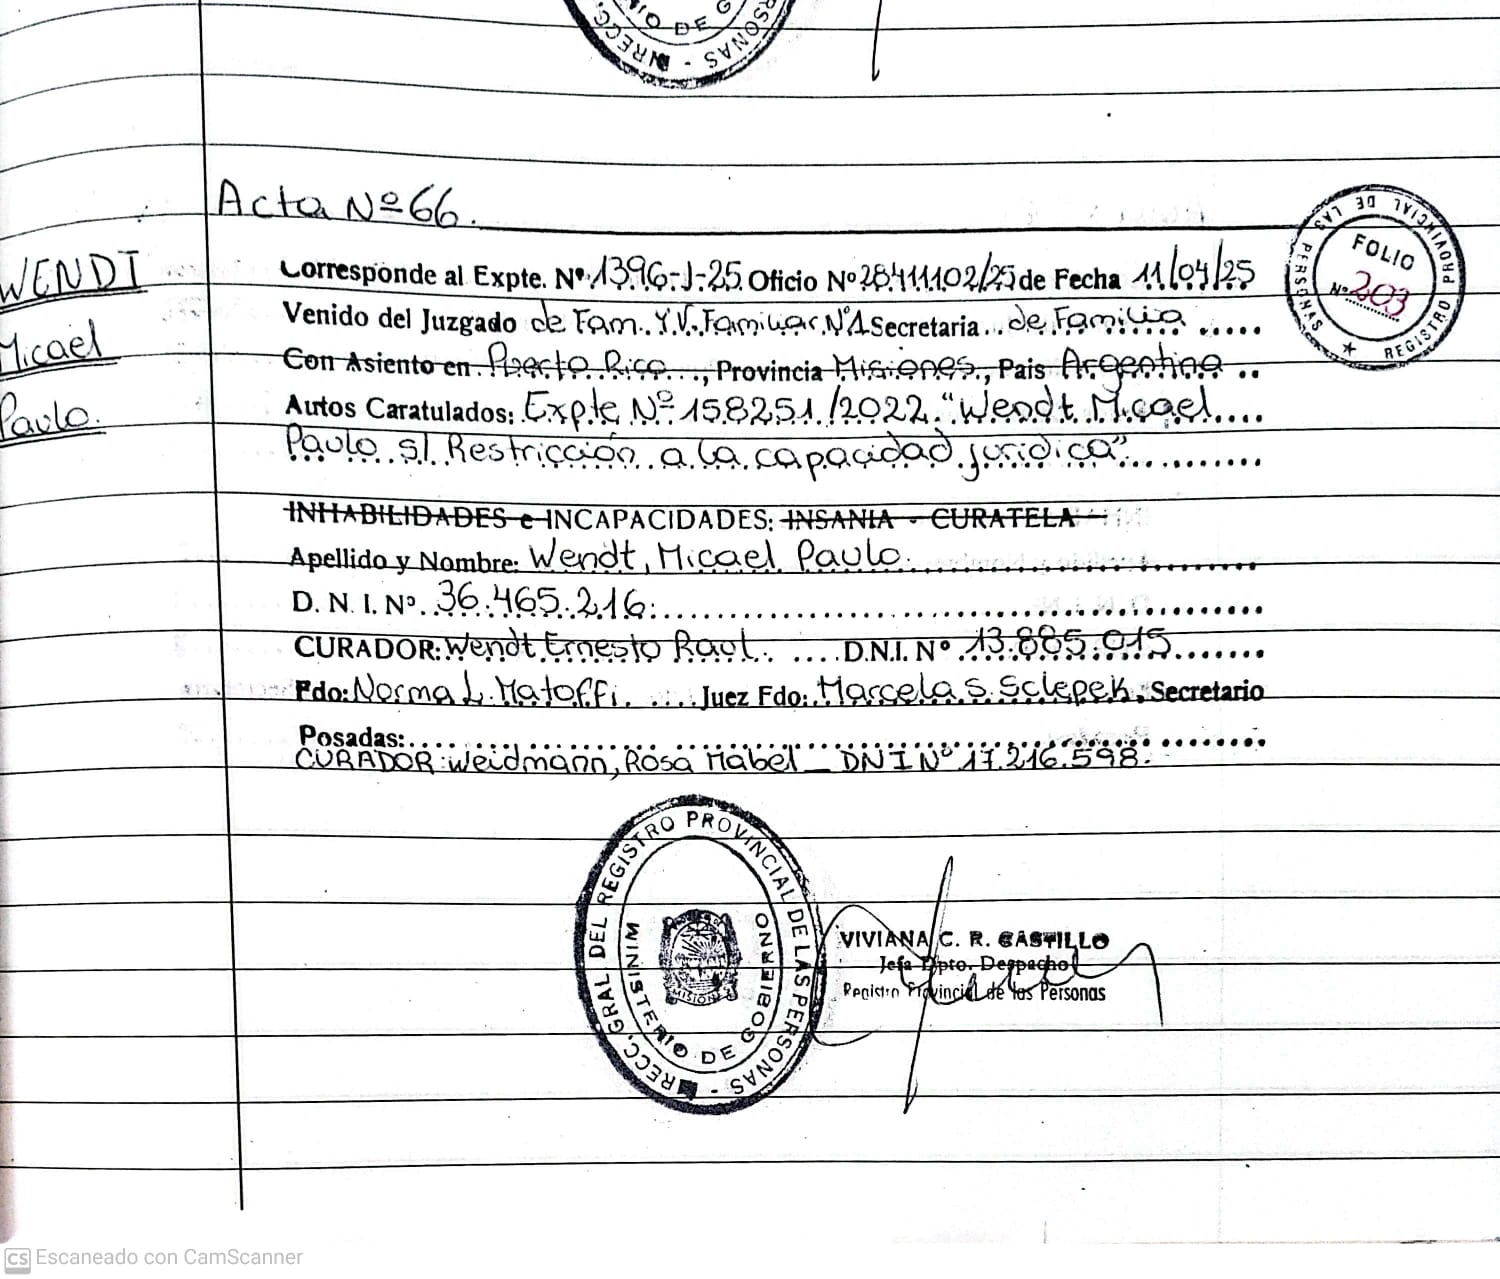 RECC. - SONAS
NIO DE G
Acta Nº 66.
WENDT
Micael
Paulo.
Corresponde al Expte. Nº 1396-J-25 Oficio Nº 28411102/25 de Fecha 11/04/25
Venido del Juzgado de Fam. Y.V. Familiar Nº1 Secretaria de Familia
Con Asiento en Puerto Rico, Provincia Misiones, Pais Argentina
Autos Caratulados: Expte Nº 158251/2022 "Wendt Micael
Paulo s/ Restricción a la capacidad jurídica"
REGISTRO PROVINCIAL DE LAS PERSONAS
FOLIO
Nº 203
INHABILIDADES e INCAPACIDADES: INSANIA - CURATELA
Apellido y Nombre: Wendt, Micael Paulo.
D. N. I. Nº. 36.465.216.
CURADOR: Wendt Ernesto Raul. D.N.I. Nº 13.885.015
Fdo: Norma L. Matoffi. Juez Fdo: Marcela S. Sclepek, Secretario
Posadas:
CURADOR: Weidmann, Rosa Mabel - DNI Nº 17.216.598.
RECC. GRAL DEL REGISTRO PROVINCIAL DE LAS PERSONAS -
MINISTERIO DE GOBIERNO
MISIONES
VIVIANA C. R. CASTILLO
Jefa Dpto. Despacho
Registro Provincial de las Personas
CS Escaneado con CamScanner